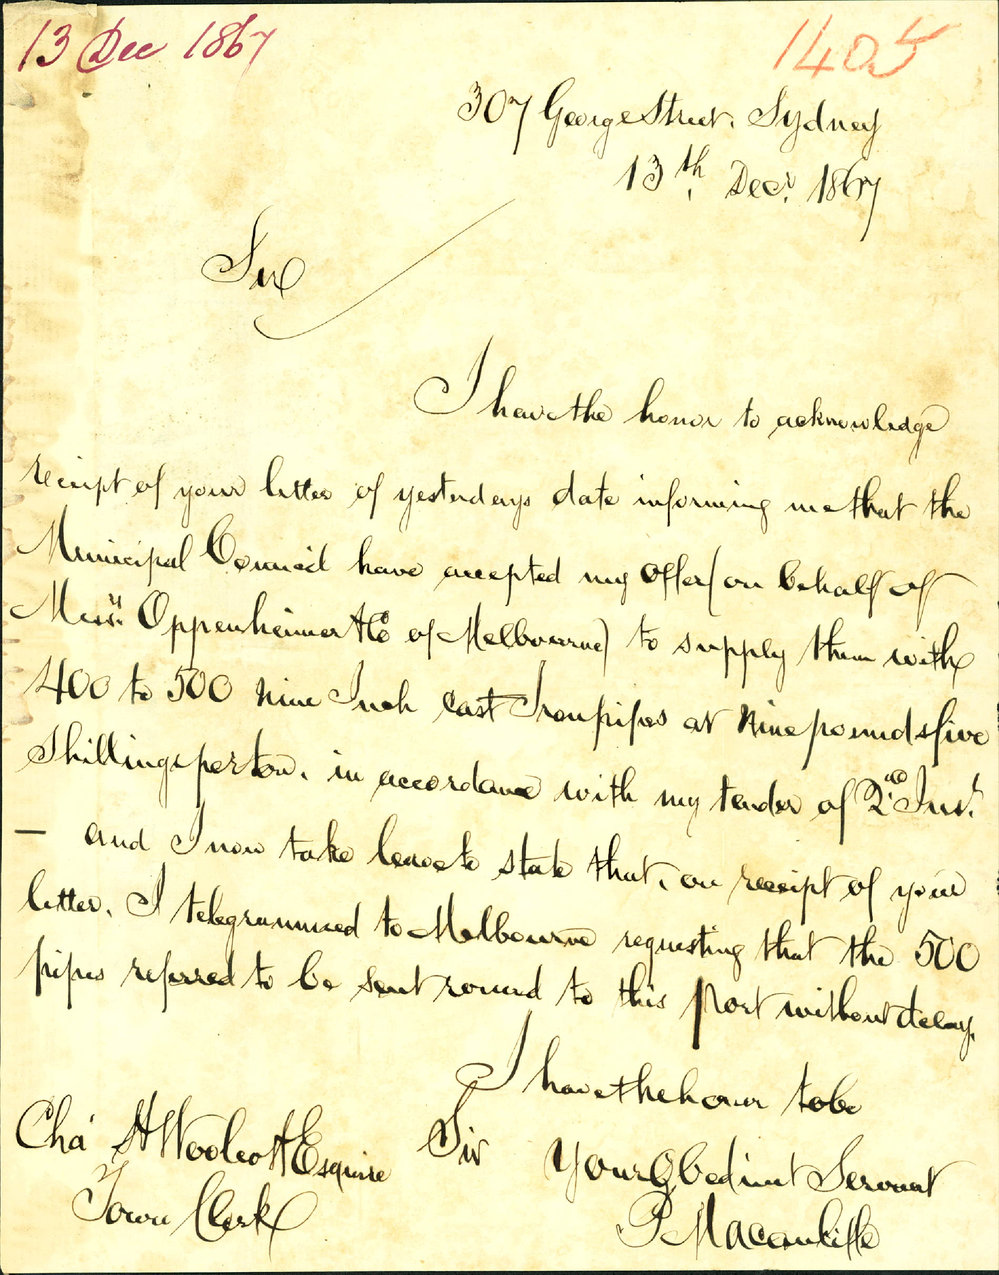 13 Dec 1867
1405
307 George Street, Sydney
13th Decr. 1867
Sir
I have the honor to acknowledge
receipt of your letter of yesterdays date informing me that the
Municipal Council have accepted my offer (on behalf of
Messrs. Oppenheimer & Co of Melbourne) to supply them with
400 to 500 Nine Inch Cast Iron pipes at Nine pounds five
Shillings per ton, in accordance with my tender of 2nd Inst.
— and I now take leave to state that, on receipt of your
letter, I telegrammed to Melbourne requesting that the 500
pipes referred to be sent round to this port without delay.
I have the honor to be
Sir
Your Obedient Servant
Chas H Woolcott Esquire
Town Clerk